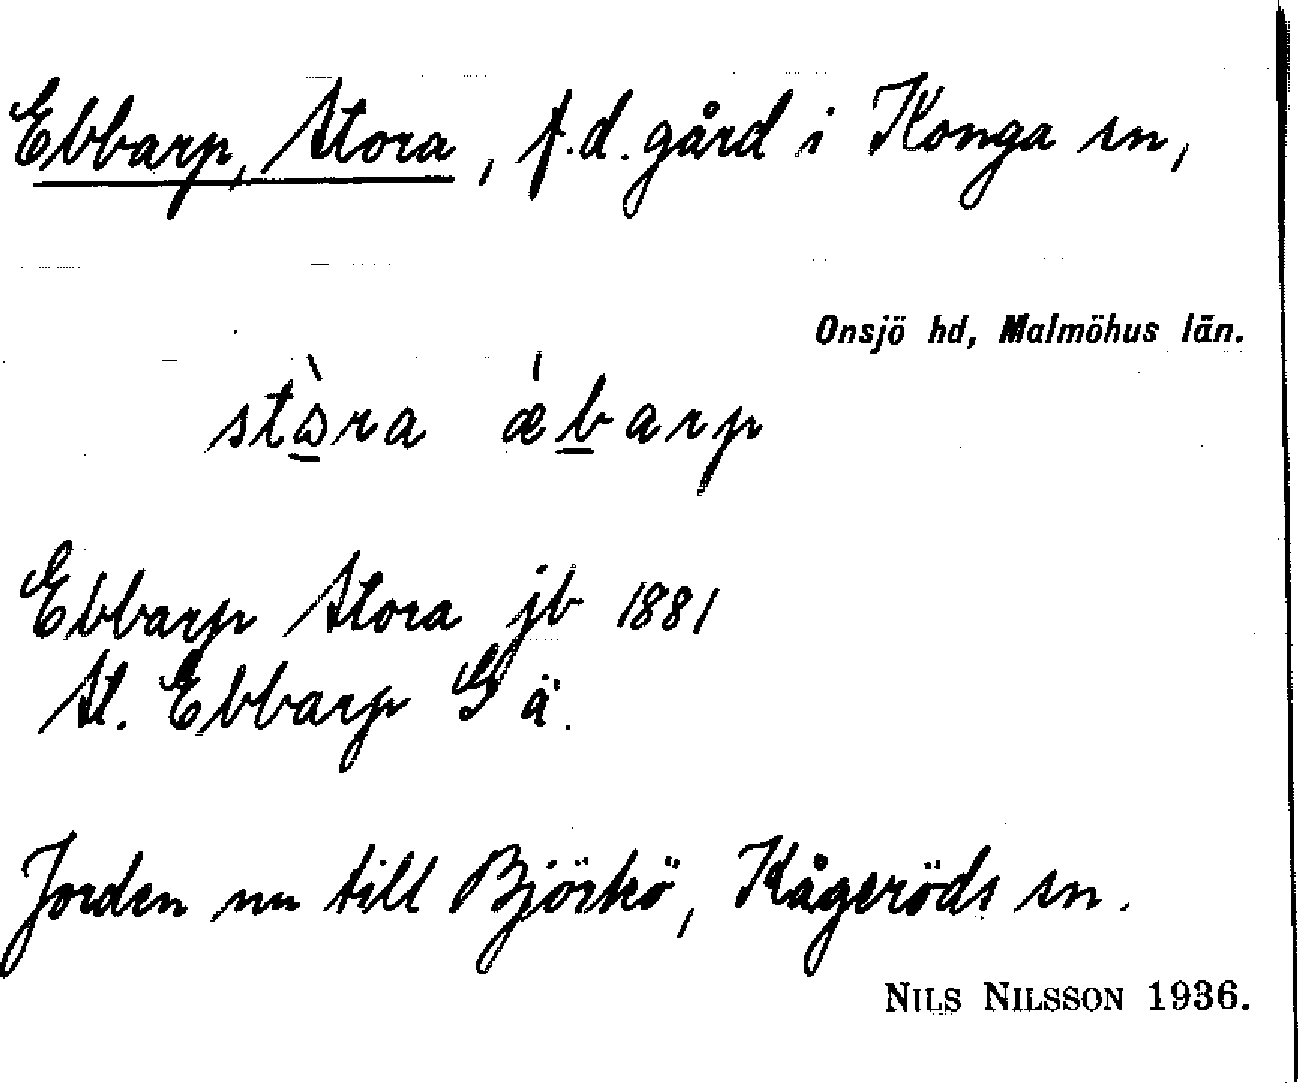 Ebbarp, Stora, f.d. gård i Konga sn,
Onsjö hd, Malmöhus län.
stɷ̱̀ra ǽḇarp
Ebbarp Stora jb 1881
St. Ebbarp Gä.
Jorden nu till Björkö, Kågeröds sn.
NILS NILSSON 1936.